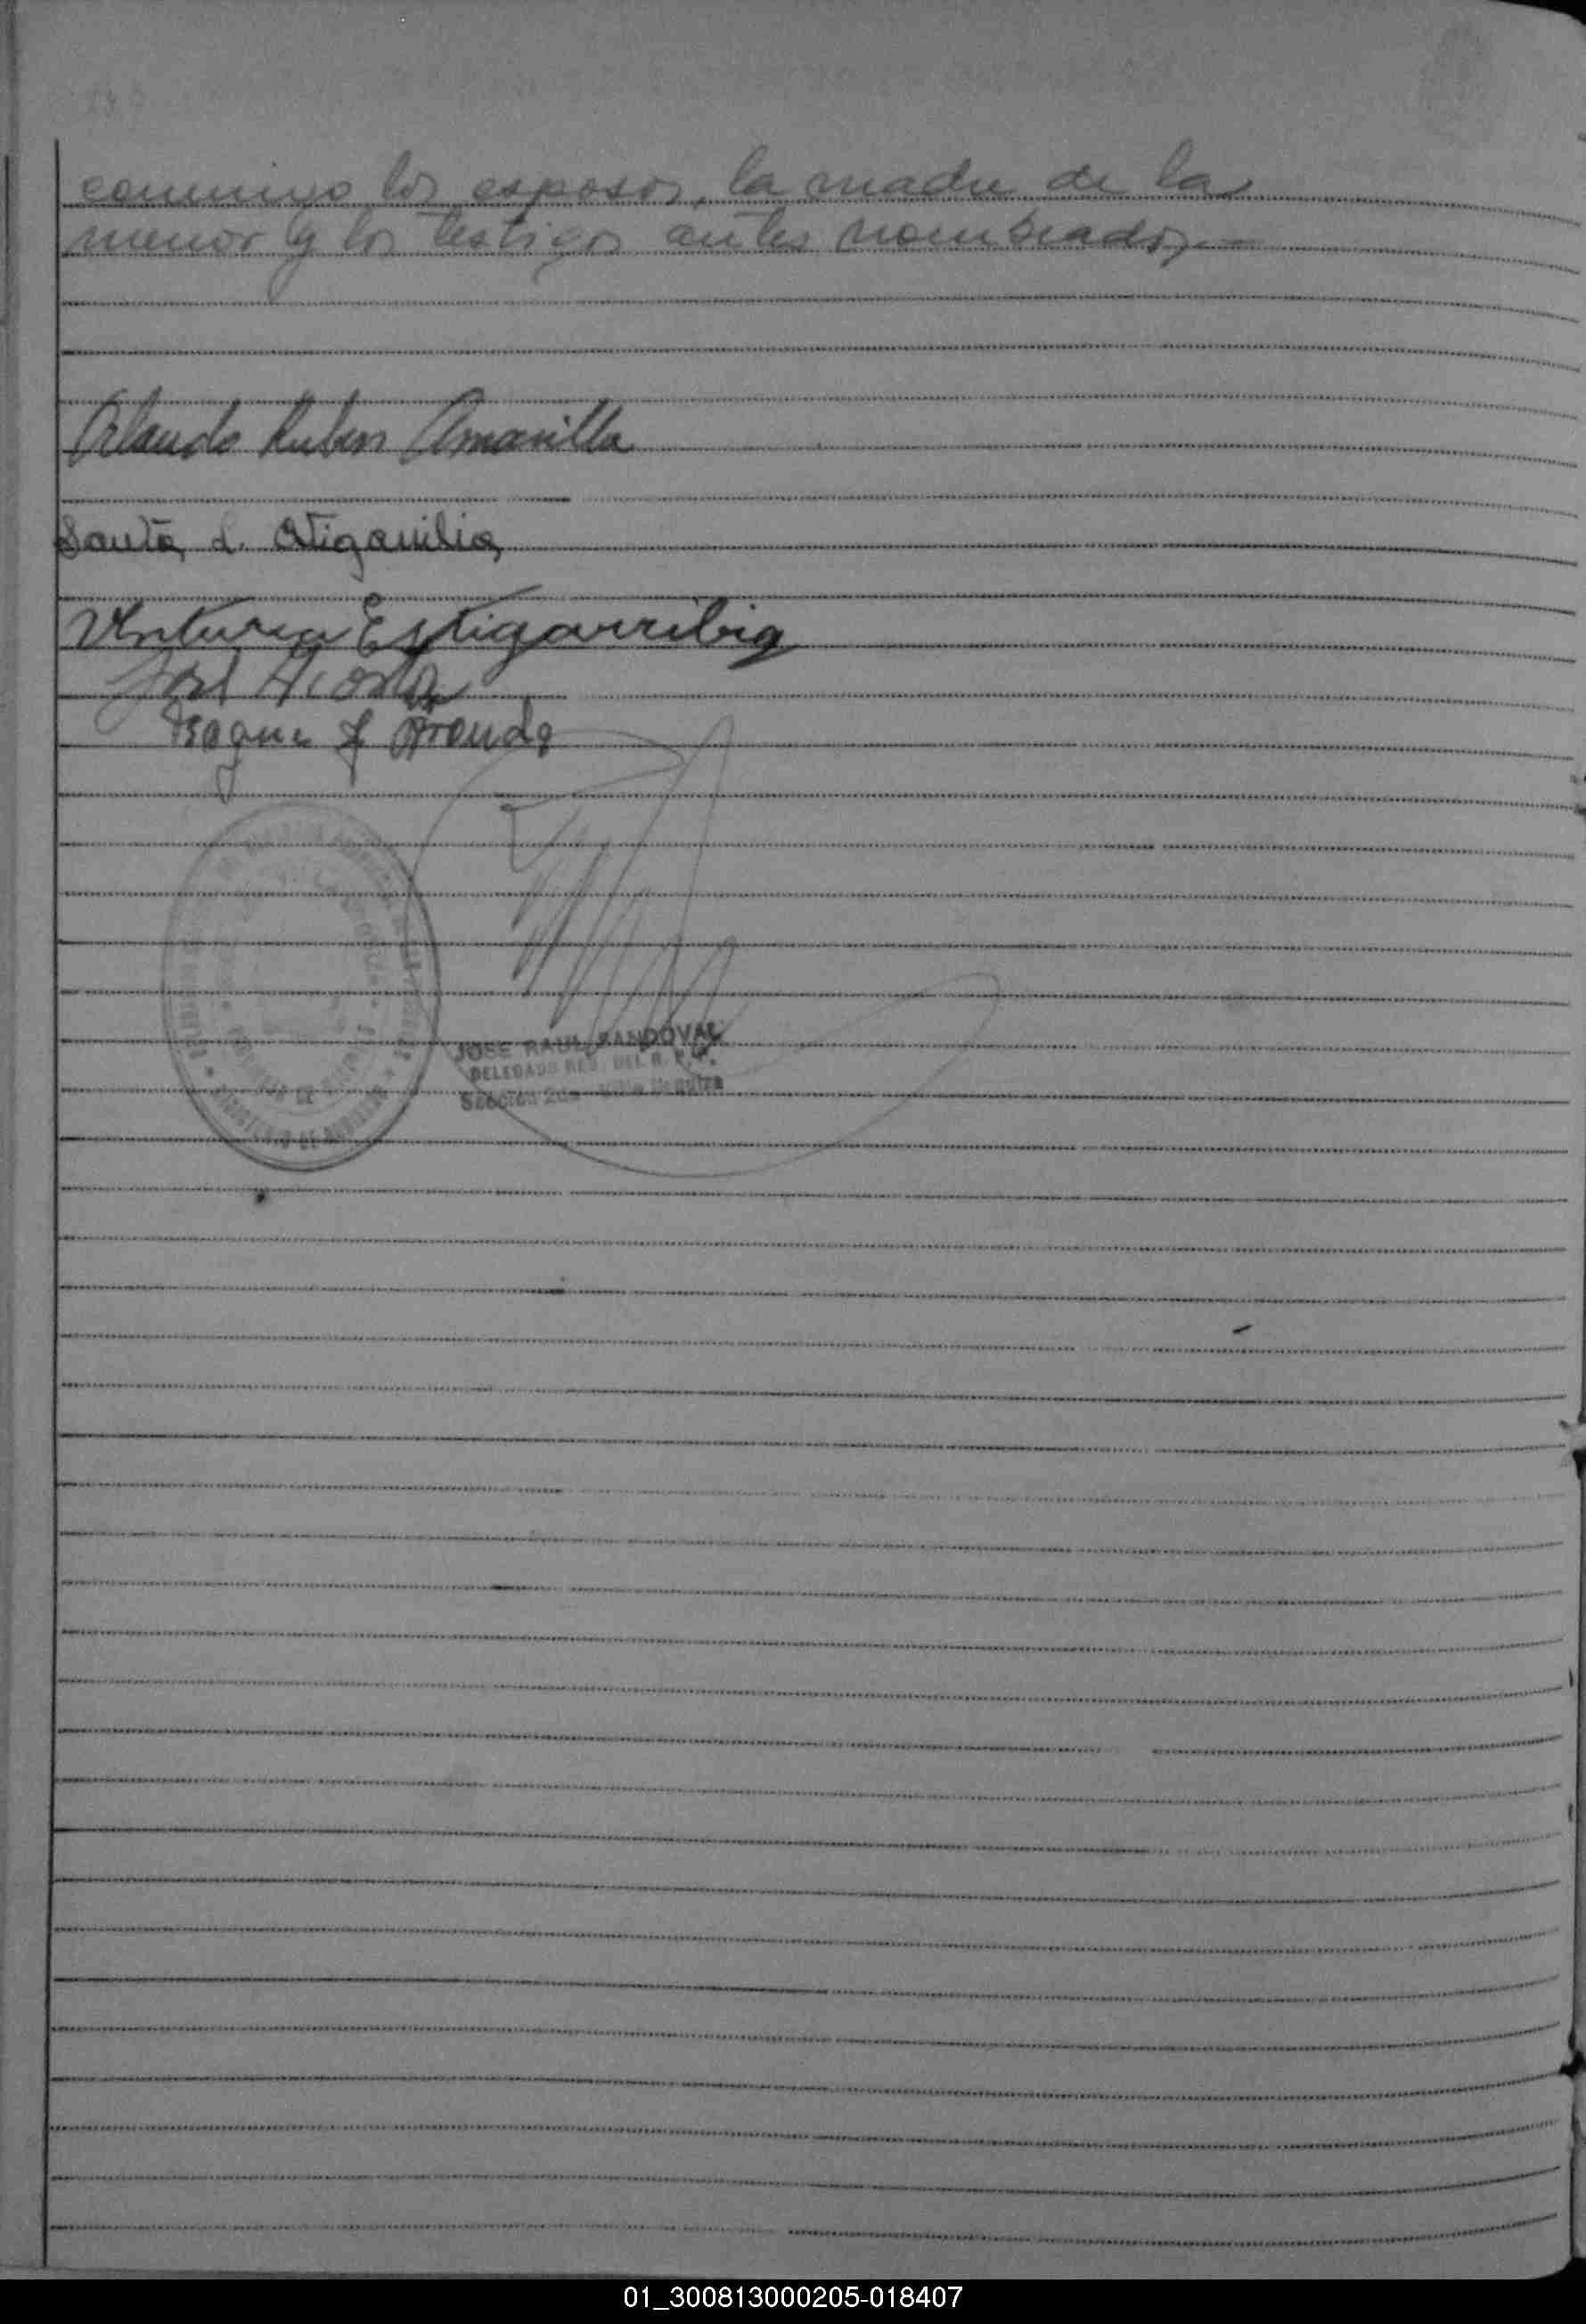 conmigo los esposos, la madre de la
menor y los testigos antes nombrados.—
Orlando Ruben Amarilla
Santa
Ventura Estigarribia
José Acosta
J Aranda
JOSE RAUL SANDOVAL
DELEGADO REG. DEL R. P.
Sección 2da
MINISTERIO DE
01_300813000205-018407